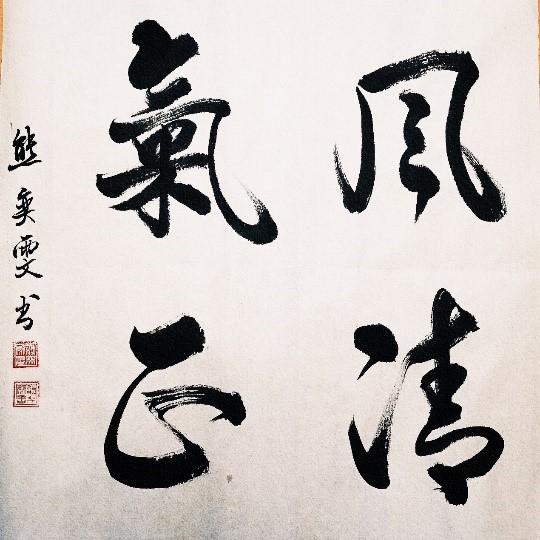 風清
氣正
熊奕雯书